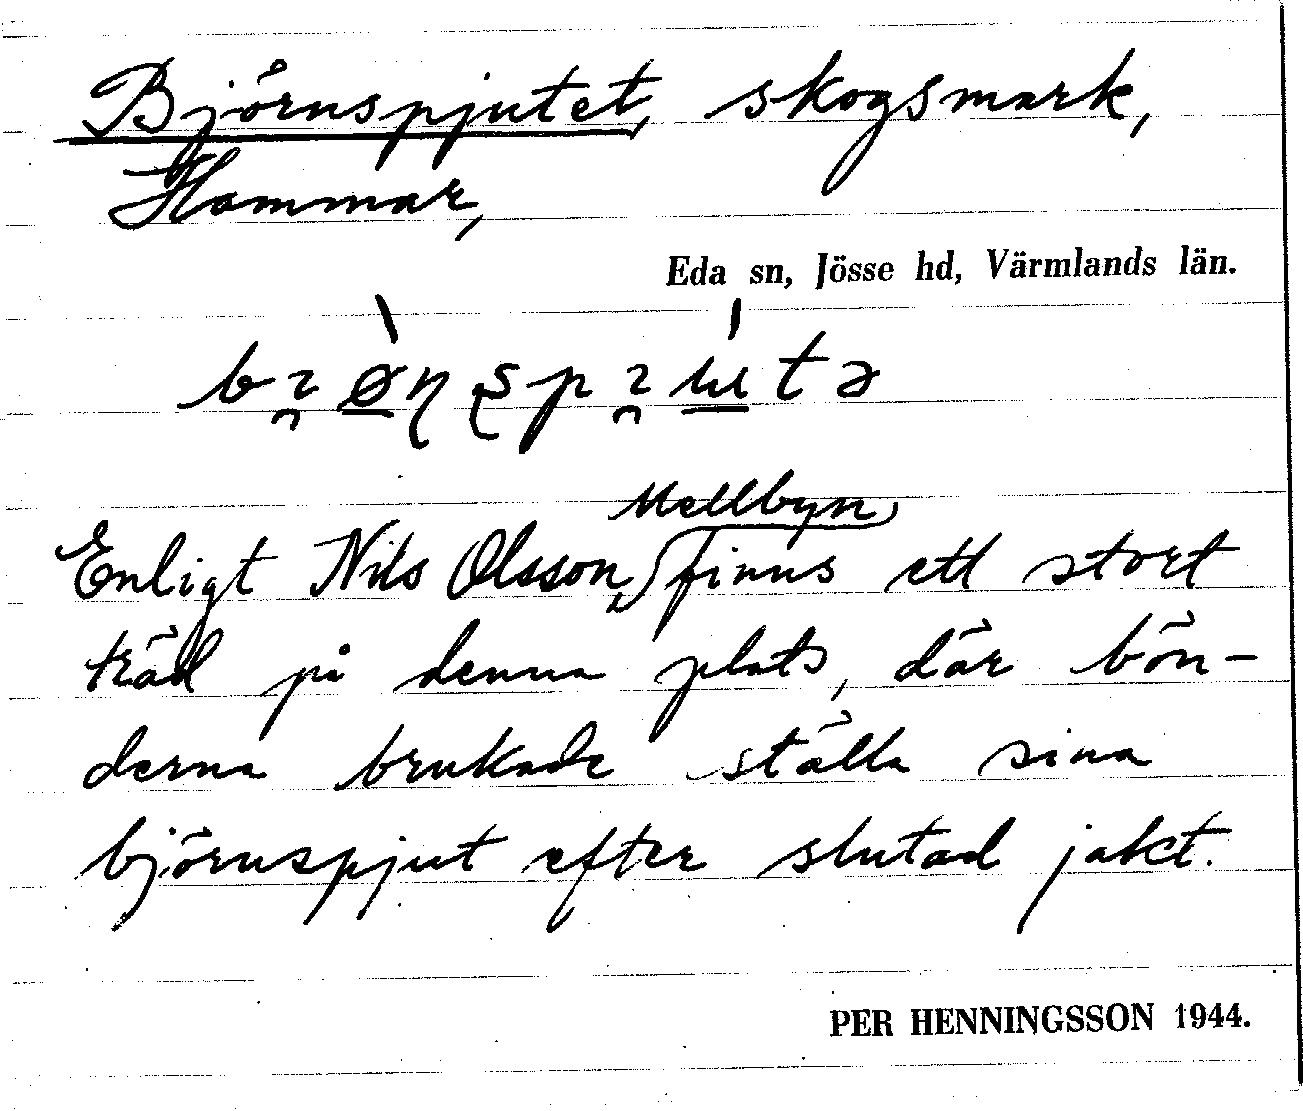 Björnspjutet, skogsmark,
Hammar,
Eda sn, Jösse hd, Värmlands län.
Mellbyn,
Enligt Nils Olsson, finns ett stort
träd på denna plats, där bön-
derna brukade ställa sina
björnspjut efter slutad jakt.
PER HENNINGSSON 1944.